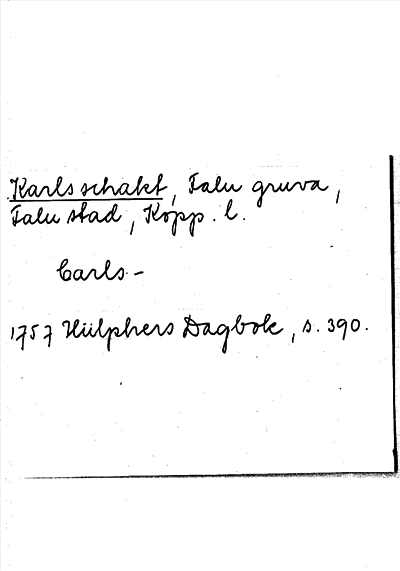 Karls schakt, Falu gruva,
Falu stad, Kopp. l.
Carls-
1757 Hülphers Dagbok, s. 390.